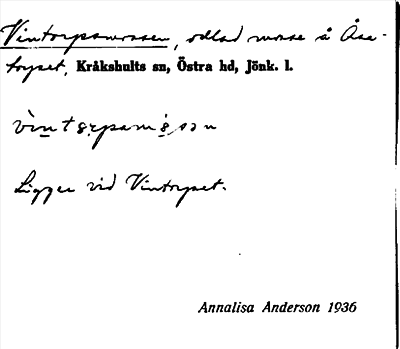 Vintorpsmossen, odlad mosse å Åsa-
torpet, Kråkshults sn, Östra hd, Jönk. l.
Ligger vid Vintorpet.
Annalisa Anderson 1936